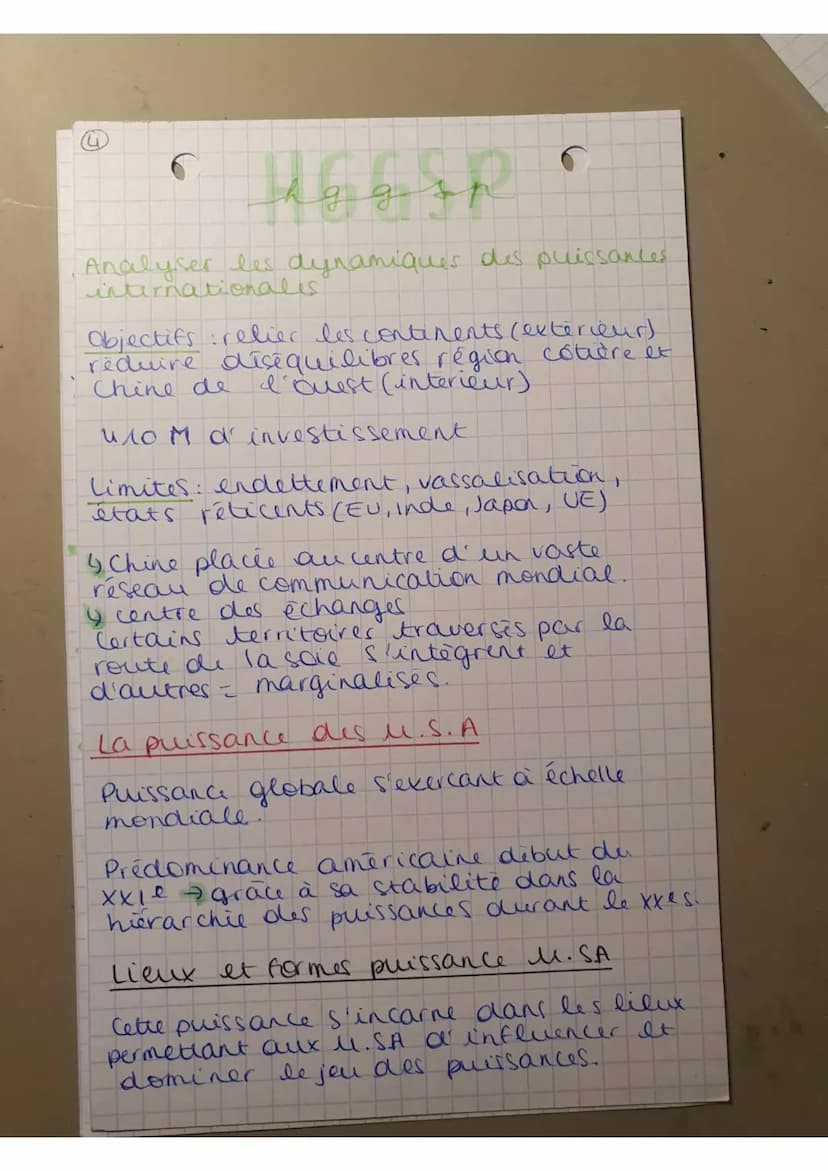 4
HGGSP
hggsp
Analyser les dynamiques des puissances
internationales
Objectifs : relier les continents (extérieur)
réduire diséquilibres région côtière et
Chine de l'Ouest (intérieur)
410 M d'investissement
Limites : endettement, vassalisation,
états réticents (EU, Inde, Japon, UE)
↳ Chine placée au centre d'un vaste
réseau de communication mondial.
↳ centre des échanges
Certains territoires traversés par la
route de la soie s'intègrent et
d'autres = marginalisés.
La puissance des U.S.A
Puissance globale s'exercant à échelle
mondiale.
Prédominance américaine début du
XXIe → grâce à sa stabilité dans la
hiérarchie des puissances durant le XXe s.
Lieux et formes puissance U.SA
Cette puissance s'incarne dans les lieux
permettant aux U.SA d'influencer et
dominer le jeu des puissances.